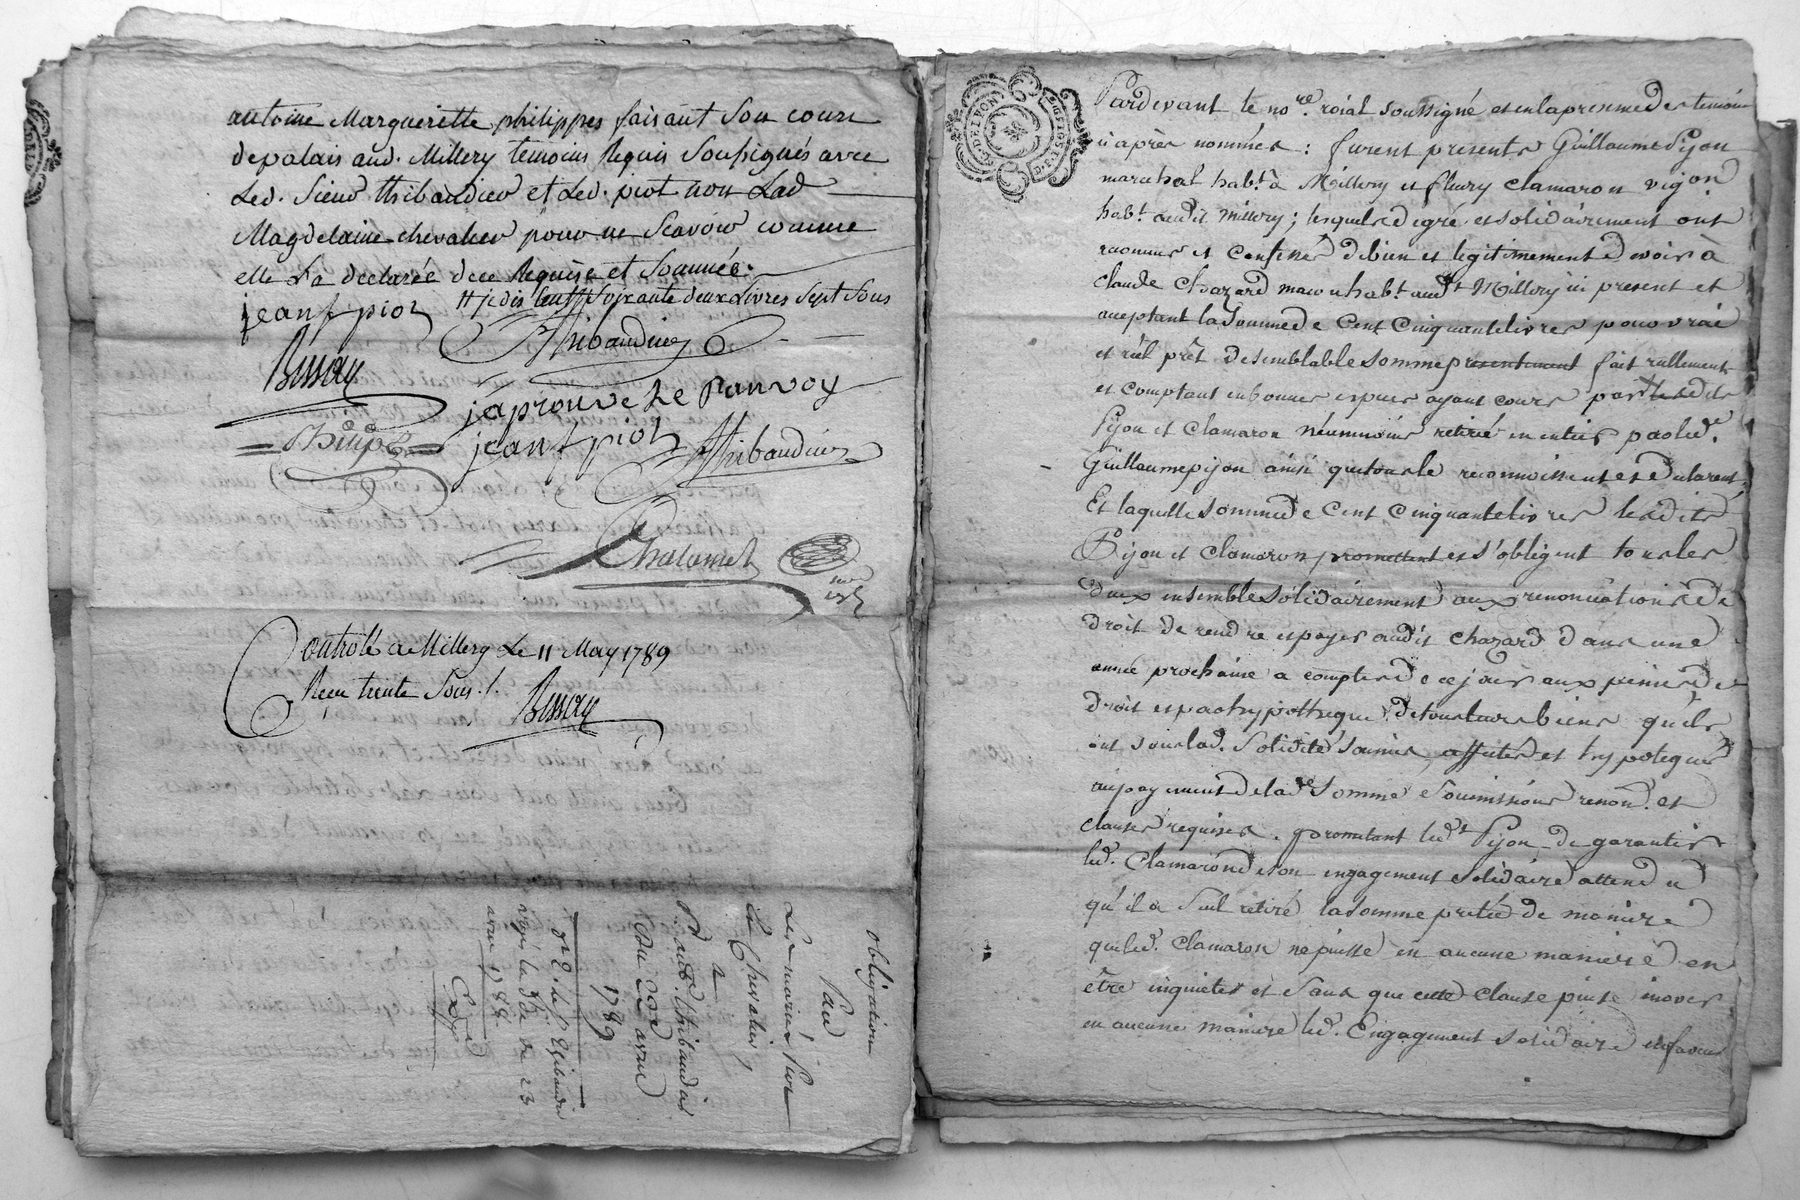 antoine Margueritte philippes faisant Son cours
de palais aud. Millery temoins Requis Soussignés avec
Led. Sieur thibaudier et Led. piot non Lad
Magdelaine chevalier pour ne Scavoir comme
elle L'a declarée de ce Requise et Sommée.
Soixante deux Livres Sept Sous
jean f piot
Thibaudier
Bissay
japrouve Le Ranvoy
jean f piot Thibaudier
Chalamel
Controllé a Millery Le 11 May 1789
Reçu trente Sous /.
Bissay
obligation
Par
Les mariés Piot
Et Chevalier
a
P. aud. thibaudier
Du 23 avril
1789
Pardevant le no.re roial soussigné et en la presence des temoins
ci après nommés : furent presents Guillaume Pijon
marechal hab.t à Millery et fleury clamaron vigon
hab.t audit Millery ; lesquels de gré et solidairement ont
reconnus et confessé de bien et legitimement devoir à
claude Chazard macon hab.t aud.t Millery ici present et
aceptant la somme de Cent Cinquante livres pour vrai
et réel prêt de semblable somme presentement fait réellement
et comptant en bonnes especes ayant cours par les dits
Pijon et Clamaron néanmoins retiré en entier par led.
Guillaume pijon ainsi que tous le reconnoissent et declarent
Et laquelle somme de Cent Cinquante livres lesdits
Pijon et Clamaron promettent et s'obligent tous les
deux ensemble solidairement aux renonciations de
droit de rendre et payer audit Chazard dans une
année prochaine a compter de ce jour aux peines de
droit et par hypotheque de tous leurs biens qu'ils
ont sous lad. solidité soumis, affectés et hypotequés
au payement de lad.e somme soumissions renon. et
clauses requises. promettant led.t Pijon de garantir
led. Clamaron de son engagement solidaire attendu
qu'il a seul retiré la somme pretée de maniere
que led. Clamaron ne puisse en aucune maniere en
être inquieter et sans que cette clause puisse inover
en aucune maniere led. Engagement solidaire en faveur